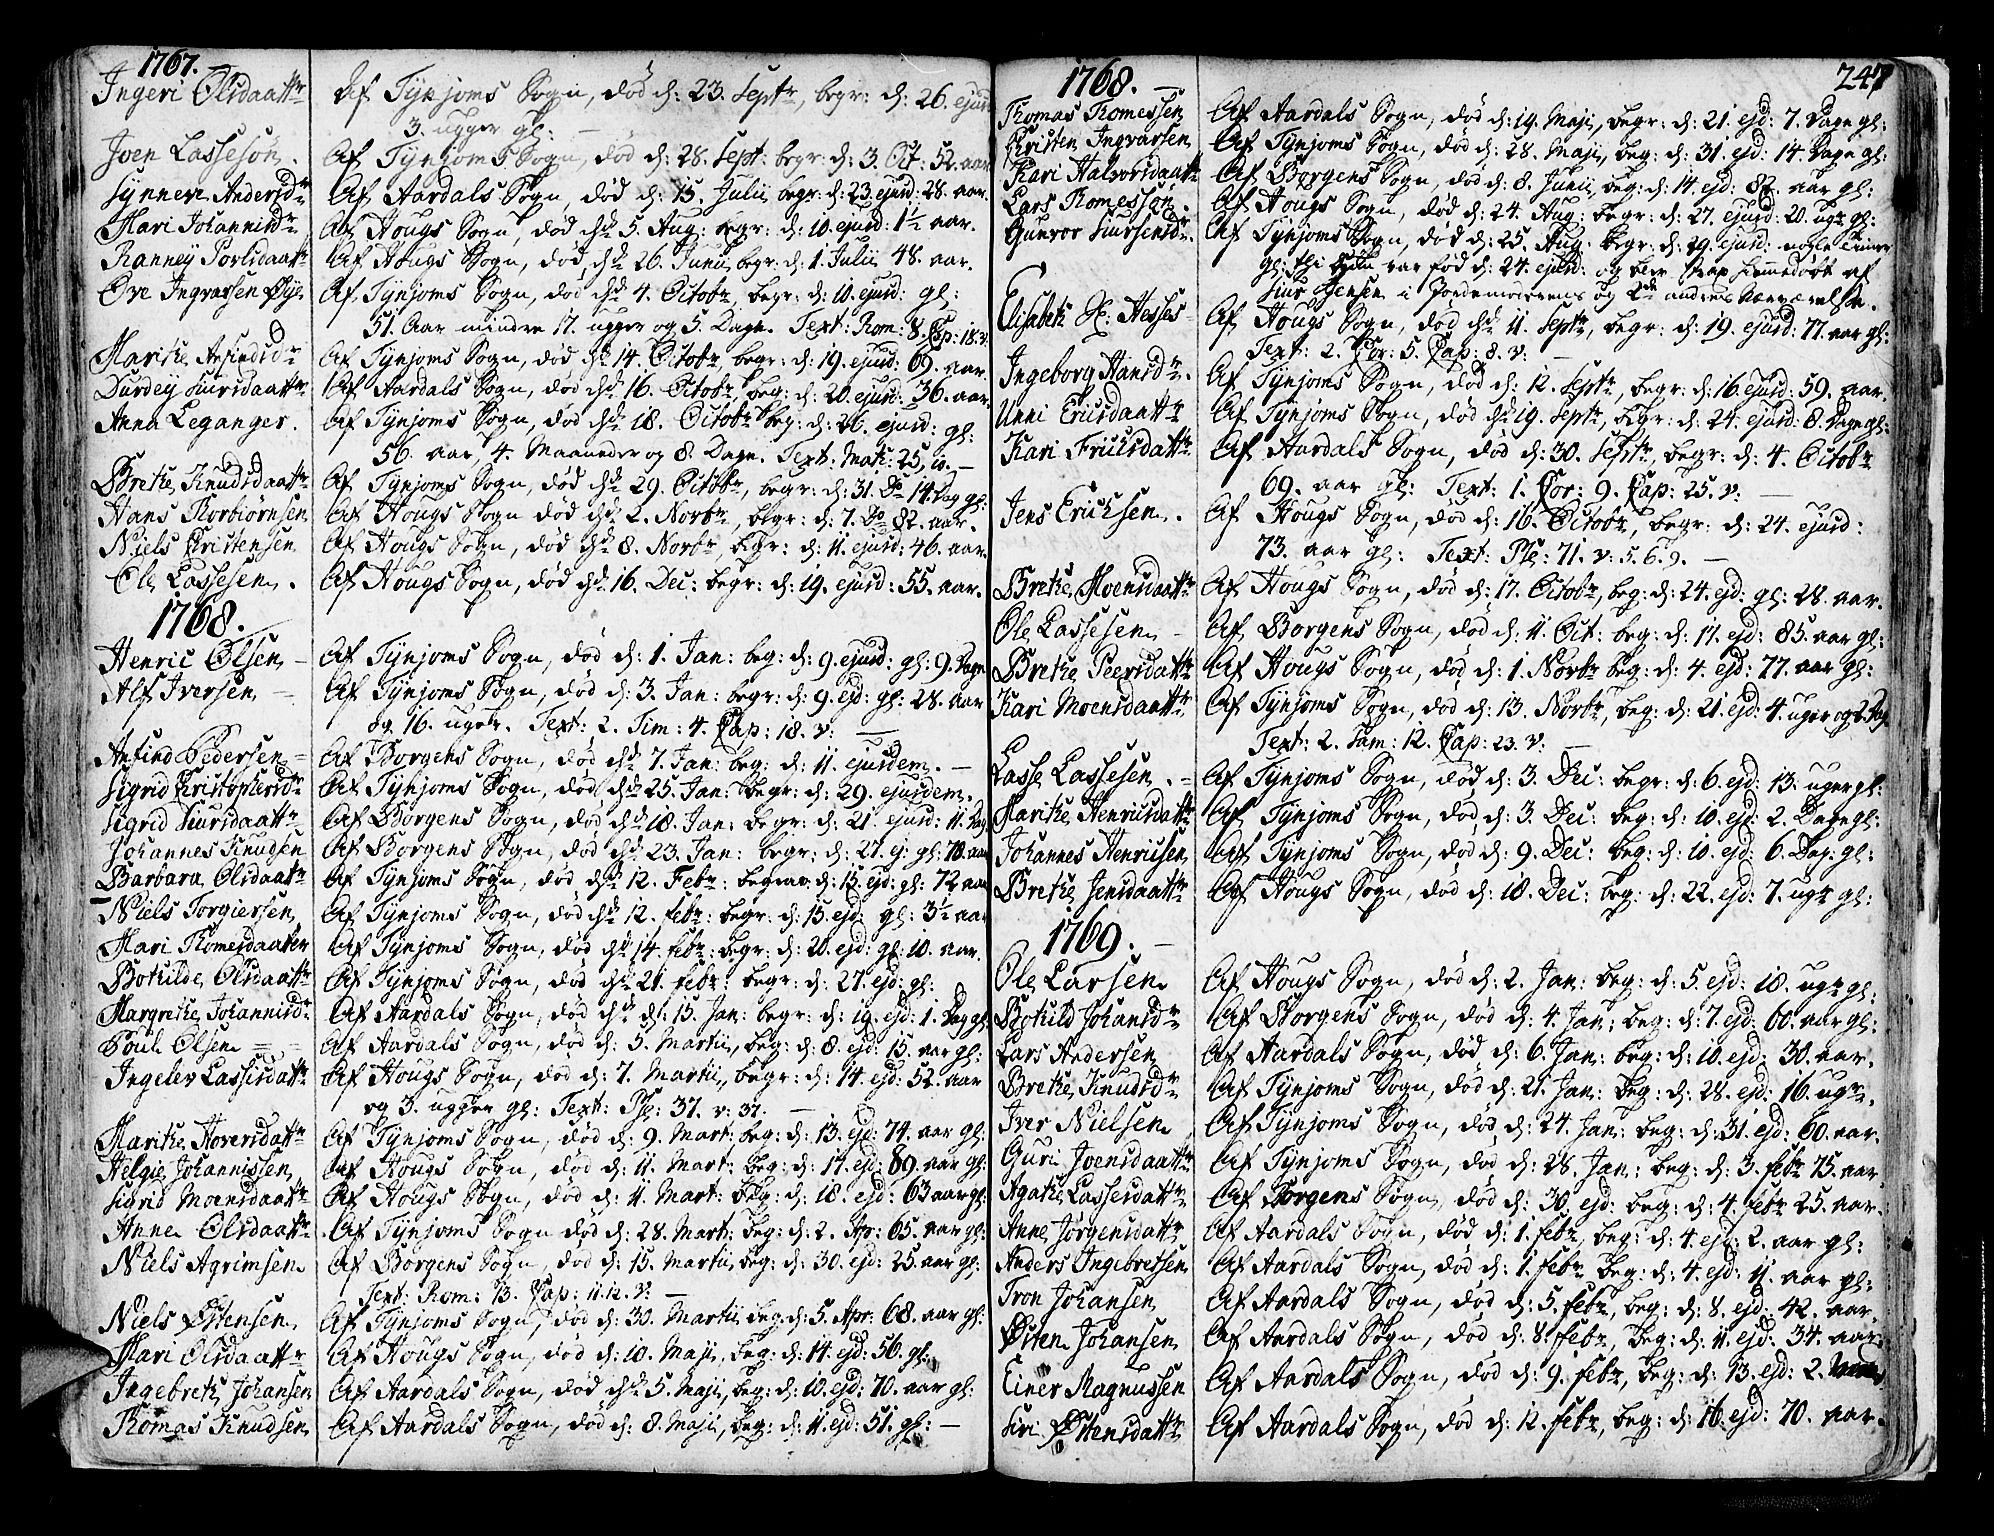 1767.
Ingeri Olsdaattr Af Tÿnjoms Sogn, død d: 23. Septr, begr: d: 26. ejusd
3. ugger gl: —
Joen Lassesøn. Af Tÿnjoms Sogn, død d: 28. Sept: begr: d: 3. Oct: 52. aar
Sÿnneve Andersdr Af Aardals Sogn, død d: 15. Julii begr: d: 23. ejusd: 28. aar.
Mari Johannisdr Af Hougs Sogn, død d: 5. Aug: begr: d: 10. ejusd: 1½ aar.
Ranneÿ Povlsdaattr Af Hougs Sogn, død d: 26. Junii begr: d: 1. Julii 48. aar.
Ove Ingvarsen Øÿe Af Tÿnjoms Sogn, død d: 4. Octobr, begr: d: 10. ejusd: gl:
51. Aar mindre 17. ugger og 5. Dage. Text: Rom: 8. Cap: 18. v.
Marithe Anfindsdr Af Tÿnjoms Sogn, død d: 14. Octobr, begr: d: 19. ejusd: 69. aar
Durdeÿ Siursdaattr Af Aardals Sogn, død d: 16. Octobr, beg: d: 20. ejusd: 36. aar.
Anna Leganger. Af Tÿnjoms Sogn, død d: 18. Octobr beg: d: 26. ejusd: gl:
56. aar, 4. Maaneder og 8. Dage. Text: Math: 25, 10. —
Brethe Knudsdaattr Af Tÿnjoms Sogn, død d: 29. Octobr, begr: d: 31. Do 14. Dag gl:
Hans Thorbiørnsen Af Hougs Sogn død d: 2. Novbr, begr: d: 7. Do 82. aar.
Niels Christensen Af Hougs Sogn, død d: 8. Novbr, begr: d: 11. ejusd: 46. aar.
Ole Lassesen. Af Hougs Sogn, død d: 16. Dec: begr: d: 19. ejusd: 55. aar.
1768.
Henric Olsen — Af Tÿnjoms Sogn, død d: 1. Jan: beg: d: 9. ejusd: gl: 9. Dage
Alf Iversen — Af Tÿnjoms Sogn, død d: 3. Jan: begr: d: 9. ejd: gl: 28. aar
og 16. uger. Text: 2. Tim: 4. Cap: 18. v: —
Anfind Pedersen — Af Borgens Sogn, død d: 7. Jan: beg: d: 11. ejusdem. —
Sigrid Christophersdr Af Tÿnjoms Sogn, død d: 25. Jan: begr: d: 29. ejusdem.
Sigrid Siursdaattr Af Borgens Sogn, død d: 18. Jan: begr: d: 21. ejusd: 11. Dag
Johannes Knudsen Af Borgens Sogn, død d: 23. Jan: begr: d: 27. ej: gl: 70. aar
Barbara Olsdaattr Af Tÿnjoms Sogn, død d: 12. Febr: begrav: d: 15. ejd: gl: 72 aar
Niels Torgiersen Af Tÿnjoms Sogn, død d: 12. febr: begr: d: 15. ejd: gl: 3½ aar
Mari Thomesdaatter Af Tÿnjoms Sogn, død d: 14. febr: begr: d: 20. ejd: gl: 10. aar.
Bothilde Olsdaattr Af Tÿnjoms Sogn, død d: 21. febr: begr: d: 27. ejd: gl:
Margrethe Johannisdr Af Aardals Sogn, død d: 15. Jan: begr: d: 19. ejd: 1. Dag gl:
Poul Olsen — Af Aardals Sogn, død d: 5. Martii, beg: d: 8. ejd: 15. aar gl:
Ingelev Lassisdattr Af Hougs Sogn, død d: 7. Martii, begr: d: 14. ejd: 52. aar
og 3. ugger gl: Text: Ps: 37. v: 37. —
Marithe Hoversdattr Af Tÿnjoms Sogn, død d: 9. Mart: beg: d: 13. ejd: 74. aar gl:
Helgie Johannissen Af Hougs Sogn, død d: 11. Mart: beg: d: 17. ejd: 89. aar gl:
Sigrid Moensdaattr Af Hougs Sogn, død d: 11. Mart: beg: d: 18. ejd: 63 aar gl:
Anne Olsdaattr Af Tÿnjoms Sogn død d: 28. Mart: beg: d: 2. Apr: 65. aar gl:
Niels Agrimsen Af Borgens Sogn, død d: 15. Martii, beg: d: 30. ejd: 25. aar gl:
Text: Rom: 13. Cap: 11. 12. v: —
Niels Østensen Af Tÿnjoms Sogn, død d: 30. Martii beg: d: 5. Apr: 68. aar gl:
Mari Olsdaattr Af Hougs Sogn, død d: 10. Maji, beg: d: 14. ejd: 56. gl:
Ingebreth Johansen Af Aardals Sogn, død d: 5. Maji, beg: d: 10. ejd: 70. aar gl:
Thomas Knudsen Af Aardals Sogn, død d: 8. Maji, beg: d: 11. ejd: 51. gl: —
1768. — 247
Thomas Thomessen Af Aardals Sogn, død d: 19. Maji, begr: d: 21. ejd: 7. Dage gl:
Christen Ingvarsen Af Tÿnjoms Sogn, død d: 28. Maji, beg: d: 31. ejd: 14. Dage gl:
Kari Halvorsdaattr Af Borgens Sogn, død d: 8. Junii, beg: d: 14. ejd: 82. aar gl:
Lars Thomessøn. Af Hougs Sogn, død d: 24. Aug: begr: d: 27. ejusd: 20. ugr gl:
Gunvor Siursensdr. Af Tÿnjoms Sogn, død d: 25. Aug: begr: d: 29. ejusd: nogle Timer
gl: thi var fød d: 24. ejusd: og blev af
Siur Jensen i Jordemoderens og 2de andres nærværelse.
Elisabeth H: Hesses Af Hougs Sogn, død d: 11. Septr, begr: d: 19. ejusd: 77. aar gl:
Text: 2. Cor: 5. Cap: 8. v: —
Ingeborg Hansdr. Af Tÿnjoms Sogn, død d: 12. Septr, begr: d: 16. ejusd: 59. aar.
Unni Ericsdaattr Af Tÿnjoms Sogn, død d: 19. Septr, begr: d: 24. ejusd: 8. Dage gl:
Kari Fricksdattr Af Aardals Sogn, død d: 30. Septr, begr: d: 4. Octobr
69. aar gl: Text: 1. Cor: 9. Cap: 25. v: —
Jens Erichsen. Af Hougs Sogn, død d: 16. Octobr, begr: d: 24. ejusd:
73. aar gl: Text: Ps: 71. v: 5. 6. 9. —
Brethe Moensdaattr Af Hougs Sogn, død d: 17. Octobr, beg: d: 24. ejd: gl: 28. aar.
Ole Lassesen — Af Borgens Sogn, død d: 11. Oct: beg: d: 17. ejd: 85. aar gl:
Brethe Peersdattr Af Hougs Sogn, død d: 1. Novbr beg: d: 4. ejd: 77. aar gl:
Kari Moensdaattr Af Tÿnjoms Sogn, død d: 13. Novbr, beg: d: 21. ejd: 4. uger og 2. Dag
Text: 2. Sam: 12. Cap: 23. v: —
Lasse Lassesen. — Af Tÿnjoms Sogn, død d: 3. Dec: begr: d: 6. ejd: 13. uger gl:
Marithe Henricsdattr Af Tÿnjoms Sogn, død d: 3. Dec: beg: d: 10. ejd: 2. Dage gl:
Johannes Henricsen Af Tÿnjoms Sogn, død d: 9. Dec: beg: d: 10. ejd: 6. Dag: gl:
Brethe Jensdaattr Af Hougs Sogn, død d: 18. Dec: beg: d: 22. ejd: 7. ugr gl:
1769. —
Ole Larsen Af Hougs Sogn, død d: 2. Jan: beg: d: 5. ejd: 10. ugr gl:
Bothild Johansdr Af Borgens Sogn, død d: 4. Jan: beg: d: 7. ejd: 60. aar gl:
Lars Andersen Af Aardals Sogn, død d: 6. Jan: beg: d: 10. ejd: 30. aar.
Brethe Knudsdr Af Tÿnjoms Sogn, død d: 21. Jan: beg: d: 28. ejd: 16. ugr.
Iver Nielsen Af Tÿnjoms Sogn, død d: 24. Jan: beg: d: 31. ejd: 60. aar.
Guri Joensdaattr Af Tÿnjoms Sogn, død d: 28. Jan: beg: d: 3. febr 75. aar
Agathe Lassesdattr Af Borgens Sogn, død d: 30. ejd: beg: d: 4. febr 25. aar.
Anne Jørgensdattr Af Aardals Sogn, død d: 1. febr, beg: d: 4. ejd: 2. aar gl:
Anders Ingebretsen Af Aardals Sogn, død d: 1. febr beg: d: 4. ejd: 11. aar gl:
Tron Johansen Af Aardals Sogn, død d: 5. febr, beg: d: 8. ejd: 42. aar.
Østen Johansen Af Aardals Sogn, død d: 8. febr, beg: d: 11. ejd: 34. aar.
Einer Magnussen Af Aardals Sogn, død d: 9. febr, beg: d: 13. ejd: 2.
Siri Østensdattr Af Aardals Sogn, død d: 12. febr, beg: d: 16. ejd: 70. aar.